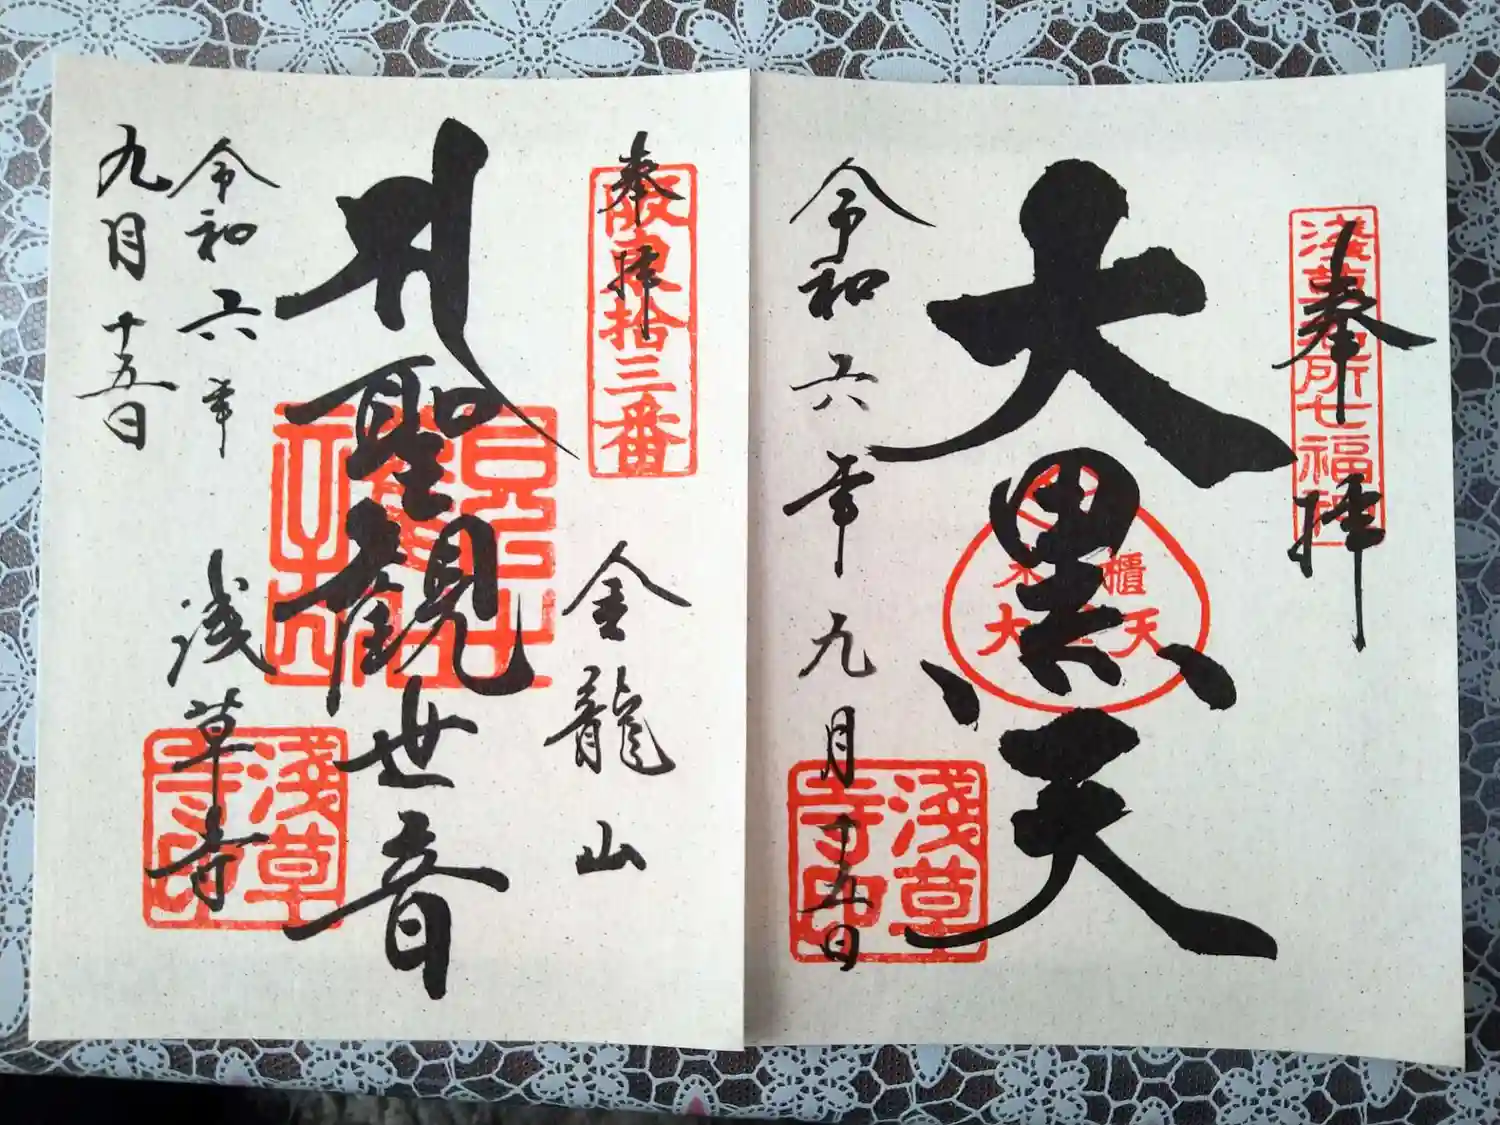 奉拝
浅草名所七福神
大黒天
米櫃
大黒天
令和六年九月十五日
浅草寺印
奉拝
坂東拾三番
金龍山
聖観世音
令和六年
九月十五日
浅草寺
浅草寺印